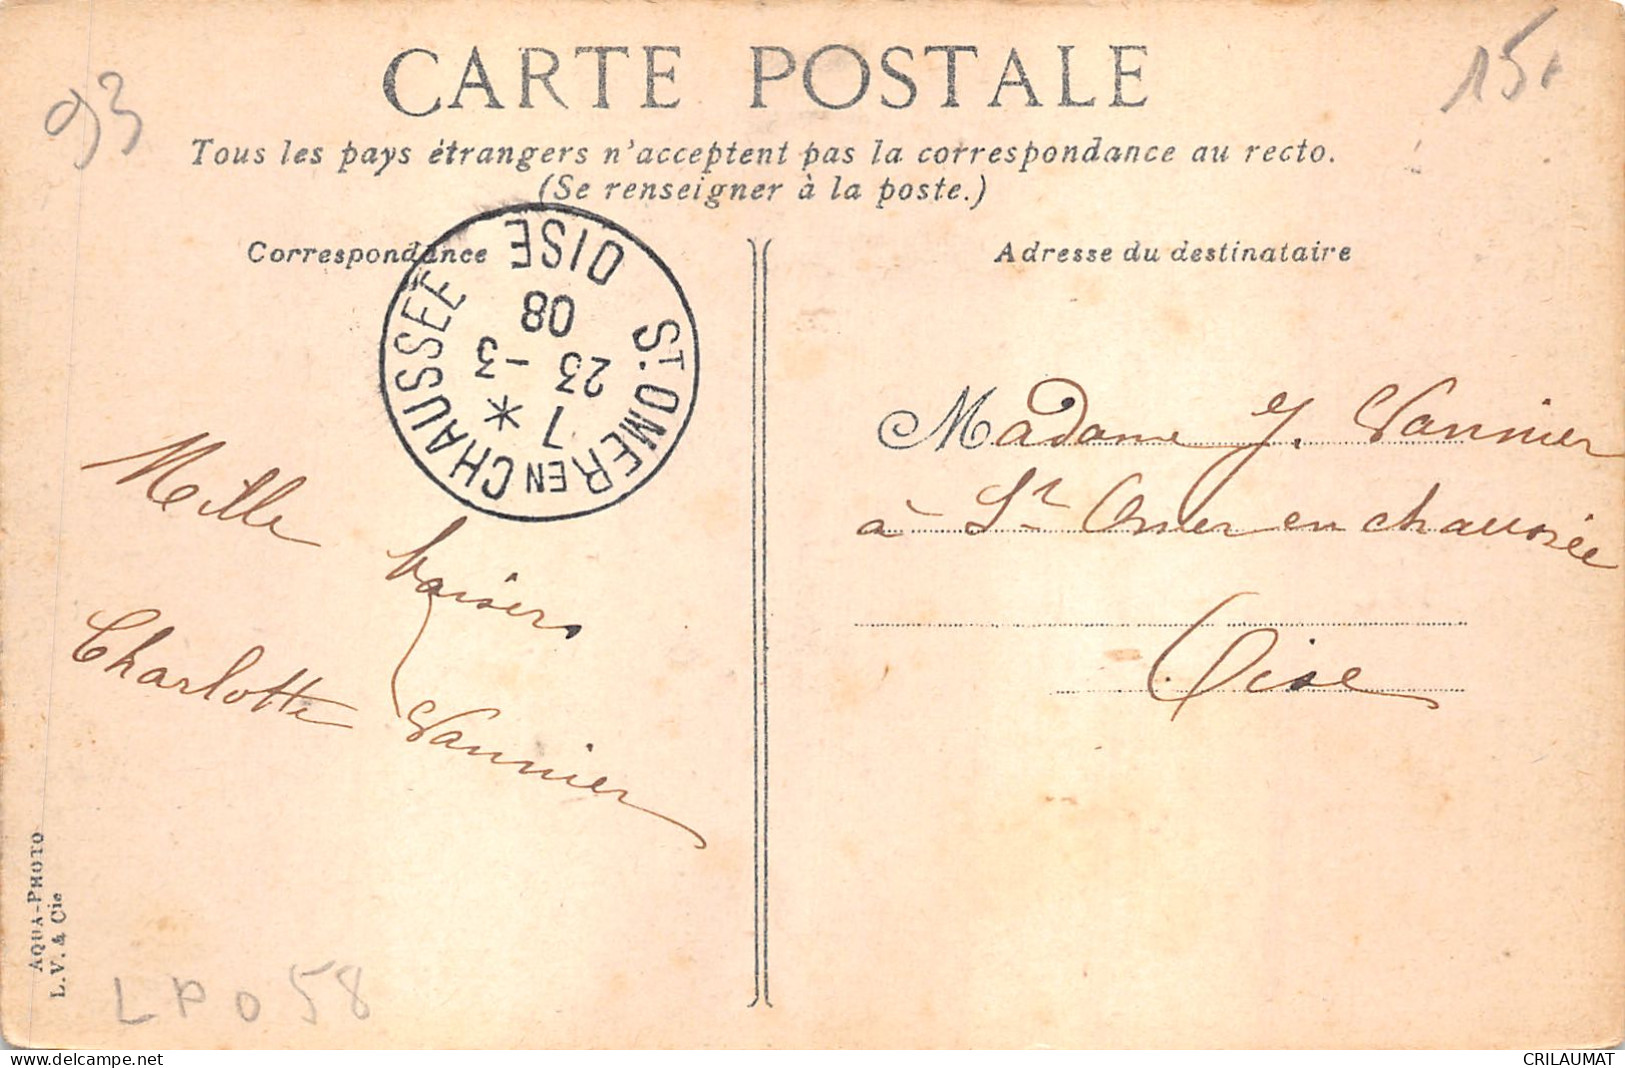 93
15
CARTE POSTALE
Tous les pays étrangers n'acceptent pas la correspondance au recto.
(Se renseigner à la poste.)
Correspondance
Adresse du destinataire
ST. OMER EN CHAUSSÉE
OISE
7 *
23 -3
08
Mille baisers
Charlotte Vannier
Madame J. Vannier
à St Omer en chaussée
Oise
AQUA-PHOTO
L.V. & Cie
LPO 58
delcampe.net
CRILAUMAT